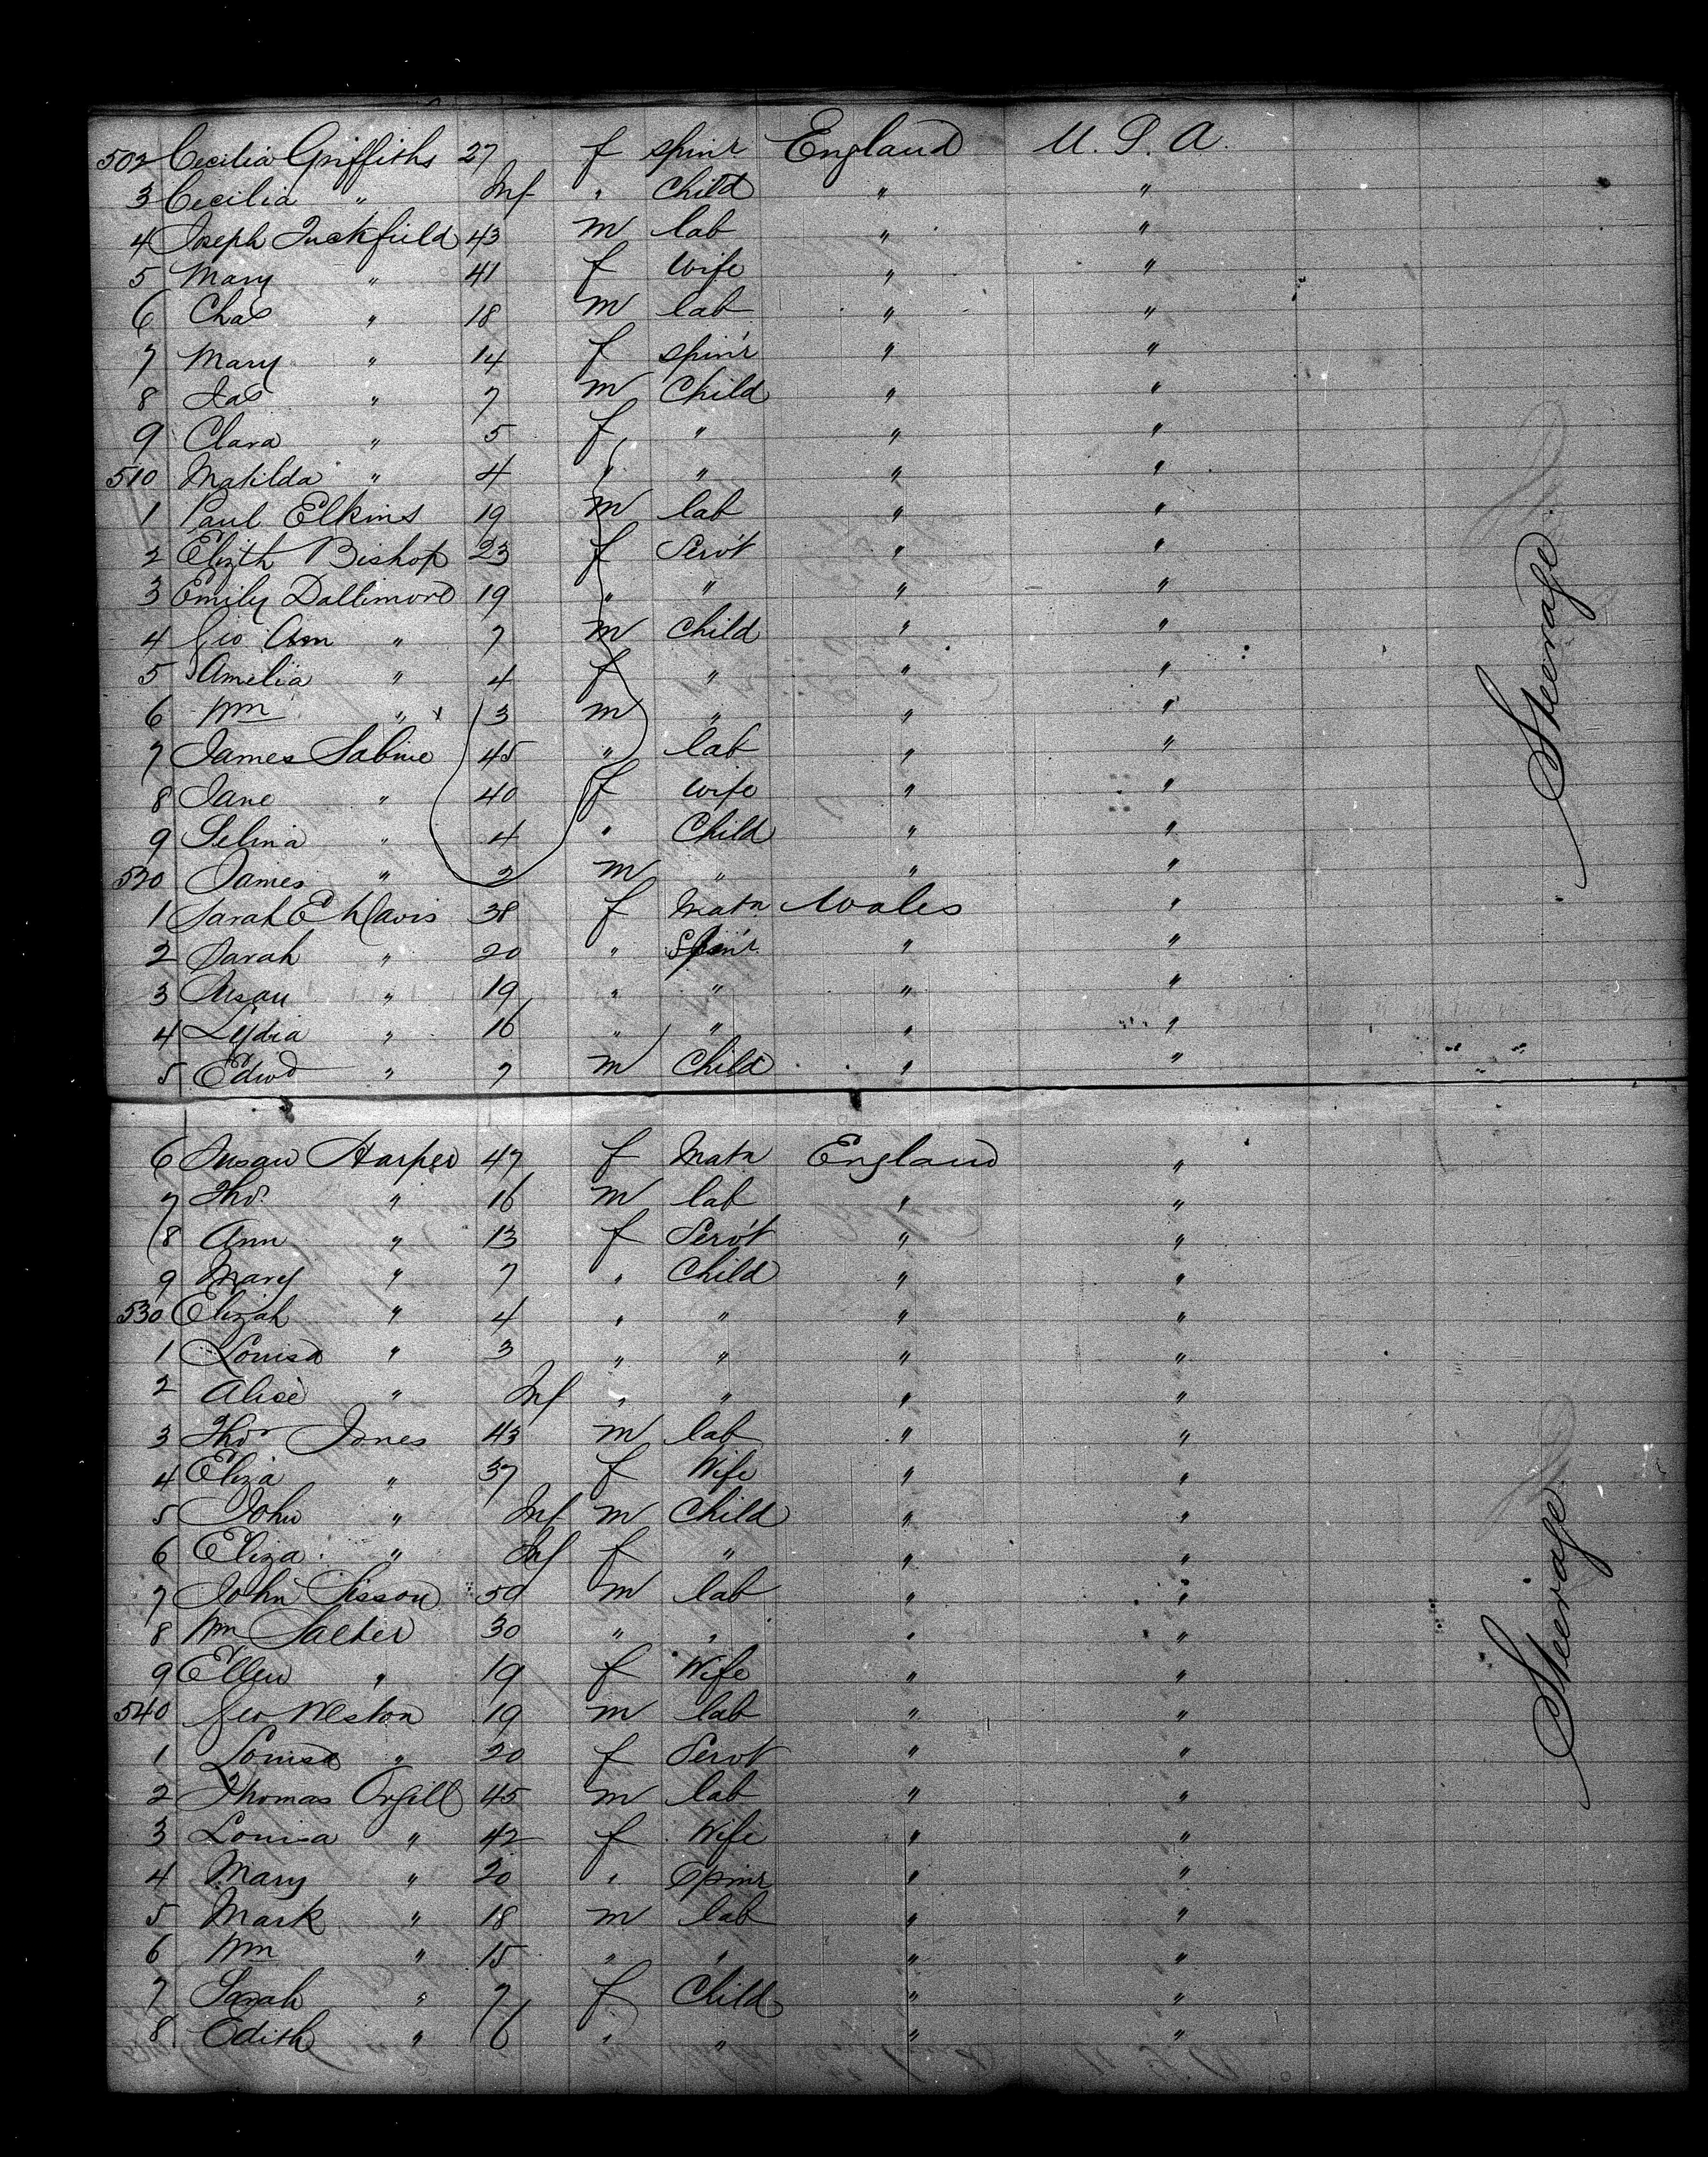 502 Cecilia Griffiths 27 f spinr England U.S.A.
3 Cecilia " Inf " Child " "
4 Joseph Tuckfield 43 m lab " "
5 Mary " 41 f Wife " "
6 Chas " 18 m lab " "
7 Mary " 14 f spin'r " "
8 Jas " 7 m Child " "
9 Clara " 5 f " " "
510 Matilda " 4 " " " "
1 Paul Elkins 19 m lab " "
2 Elizth Bishop 23 f Serv't " "
3 Emily Dallimore 19 " " " "
4 Geo " 7 m Child " "
5 Amelia " 4 f " " "
6 Wm " x 3 m " " "
7 James Sabine 45 " lab " "
8 Jane " 40 f Wife " "
9 Selina " 4 " Child " "
520 James " 2 m " " "
1 Sarah E Davis 38 f Matn Wales "
2 Sarah " 20 " Spin'r " "
3 Susan " 19 " " " "
4 Lydia " 16 " " " "
5 Edwd " 7 m Child " "
6 Susan Harper 47 f Matn England "
7 Tho. " 16 m lab " "
8 Ann " 13 f Serv't " "
9 Mary " 7 " Child " "
530 Elizah " 4 " " " "
1 Louisa " 3 " " " "
2 Alice " Inf " " " "
3 Thos Jones 43 m lab " "
4 Eliza " 37 f Wife " "
5 John " Inf m Child " "
6 Eliza " Inf f " " "
7 John Sisson 50 m lab " "
8 Wm Salter 30 " " " "
9 Ellen " 19 f Wife " "
540 Geo Weston 19 m lab " "
1 Louisa " 20 f Servt " "
2 Thomas Orgill 45 m lab " "
3 Louisa " 42 f Wife " "
4 Mary " 20 " Spinr " "
5 Mark " 18 m lab " "
6 Wm " 15 " " " "
7 Sarah " 7 f Child " "
8 Edith " 6 " " " "
Steerage
Steerage